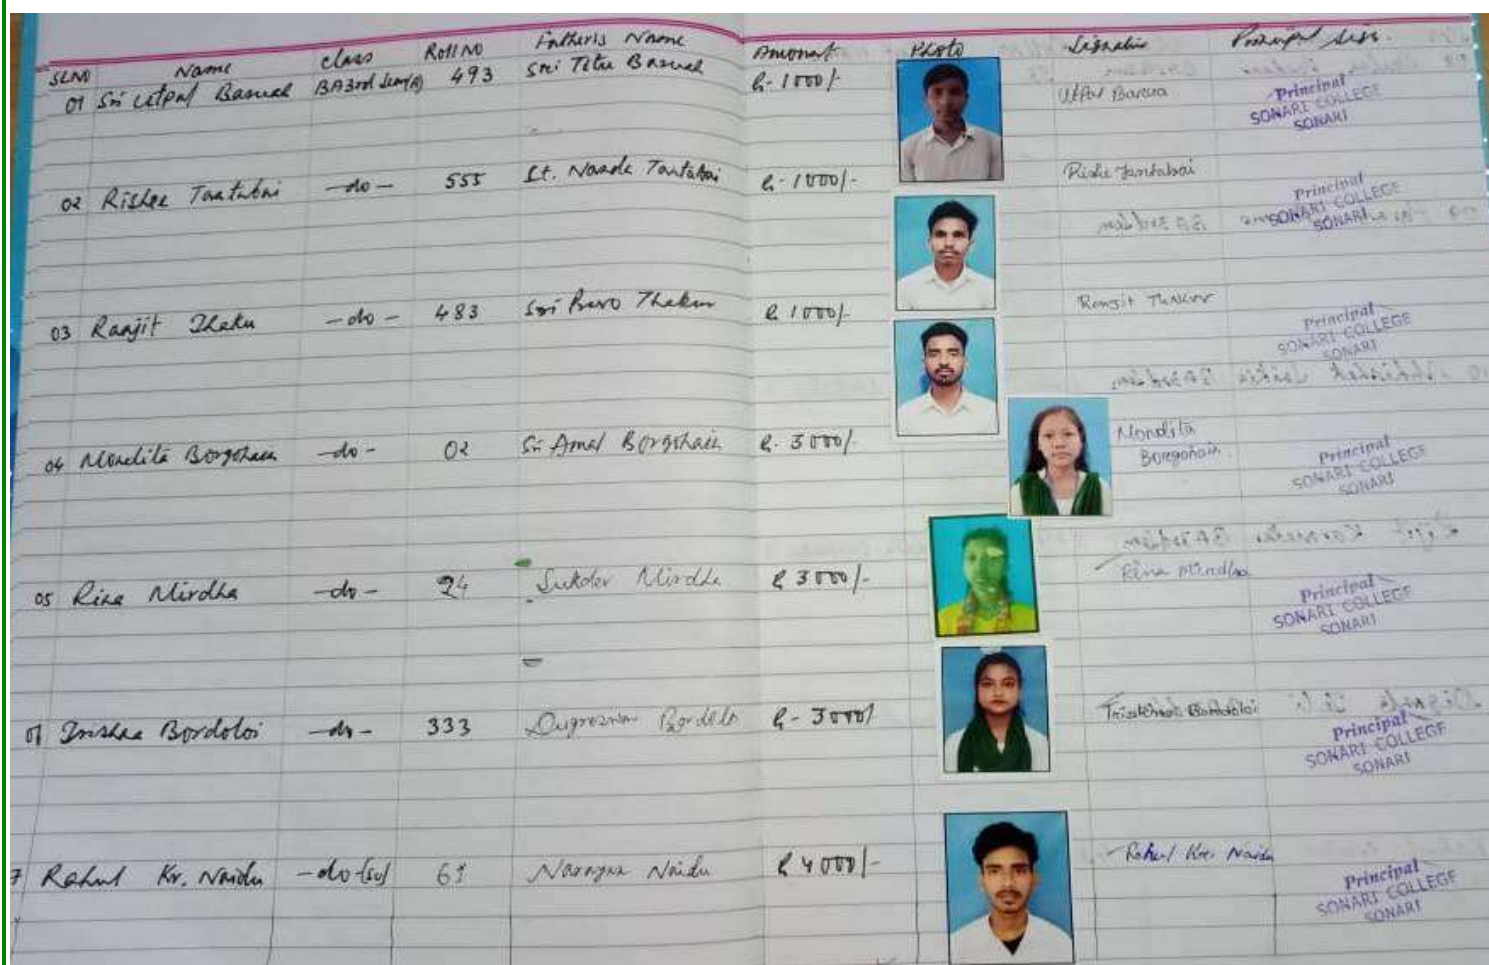 SL.NO Name class Roll NO Father's Name Amount Photo Signature Principal Sign.
01 Sri Utpal Baruah BA3rd Sem(A) 493 Sri Titu Baruah R-1000/- Utpal Barua Principal
SONARI COLLEGE
SONARI
02 Rishee Tantubai -do- 555 Lt. Nanda Tantubai R-1000/- Rishi Tantabai Principal
SONARI COLLEGE
SONARI
03 Ranjit Thaku -do- 483 Sri Thakur R 1000/- Ranjit Thakur Principal
SONARI COLLEGE
SONARI
04 Mondita Borgohain -do- 02 Sri Amal Borgohain R. 3000/- Mondita
Borgohain Principal
SONARI COLLEGE
SONARI
05 Rina Mirdha -do- 24 Sukdev Mirdha R 3000/- Rina Mirdha Principal
SONARI COLLEGE
SONARI
Trishna Bordoloi -do- 333 Bordolo R-3000/ Bordoloi Principal
SONARI COLLEGE
SONARI
7 Rahul Kr. Naidu -do- 61 Narayan Naidu R 4000/- Rahul Kr. Naidu Principal
SONARI COLLEGE
SONARI